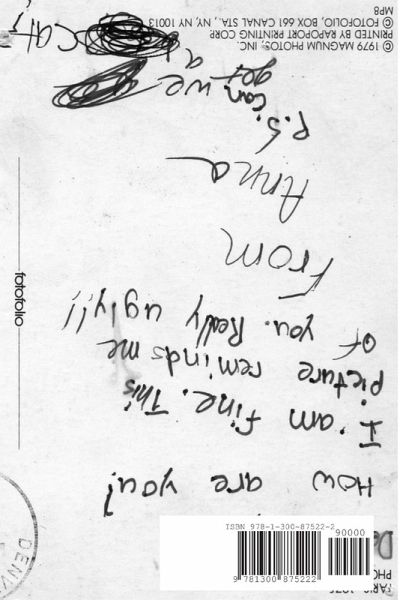 ISBN 978-1-300-87522-2
90000
9 781300 875222
PHO
De
DENV
How are you?
I'am fine. This
picture reminds me
of you. Really ugly!!!
From
Anna
P.S. can we
get a
a cat?
fotofolio
© 1979 MAGNUM PHOTOS, INC.
PRINTED BY RAPOPORT PRINTING CORP
© FOTOFOLIO, BOX 661 CANAL STA., NY, NY 10013
MP8